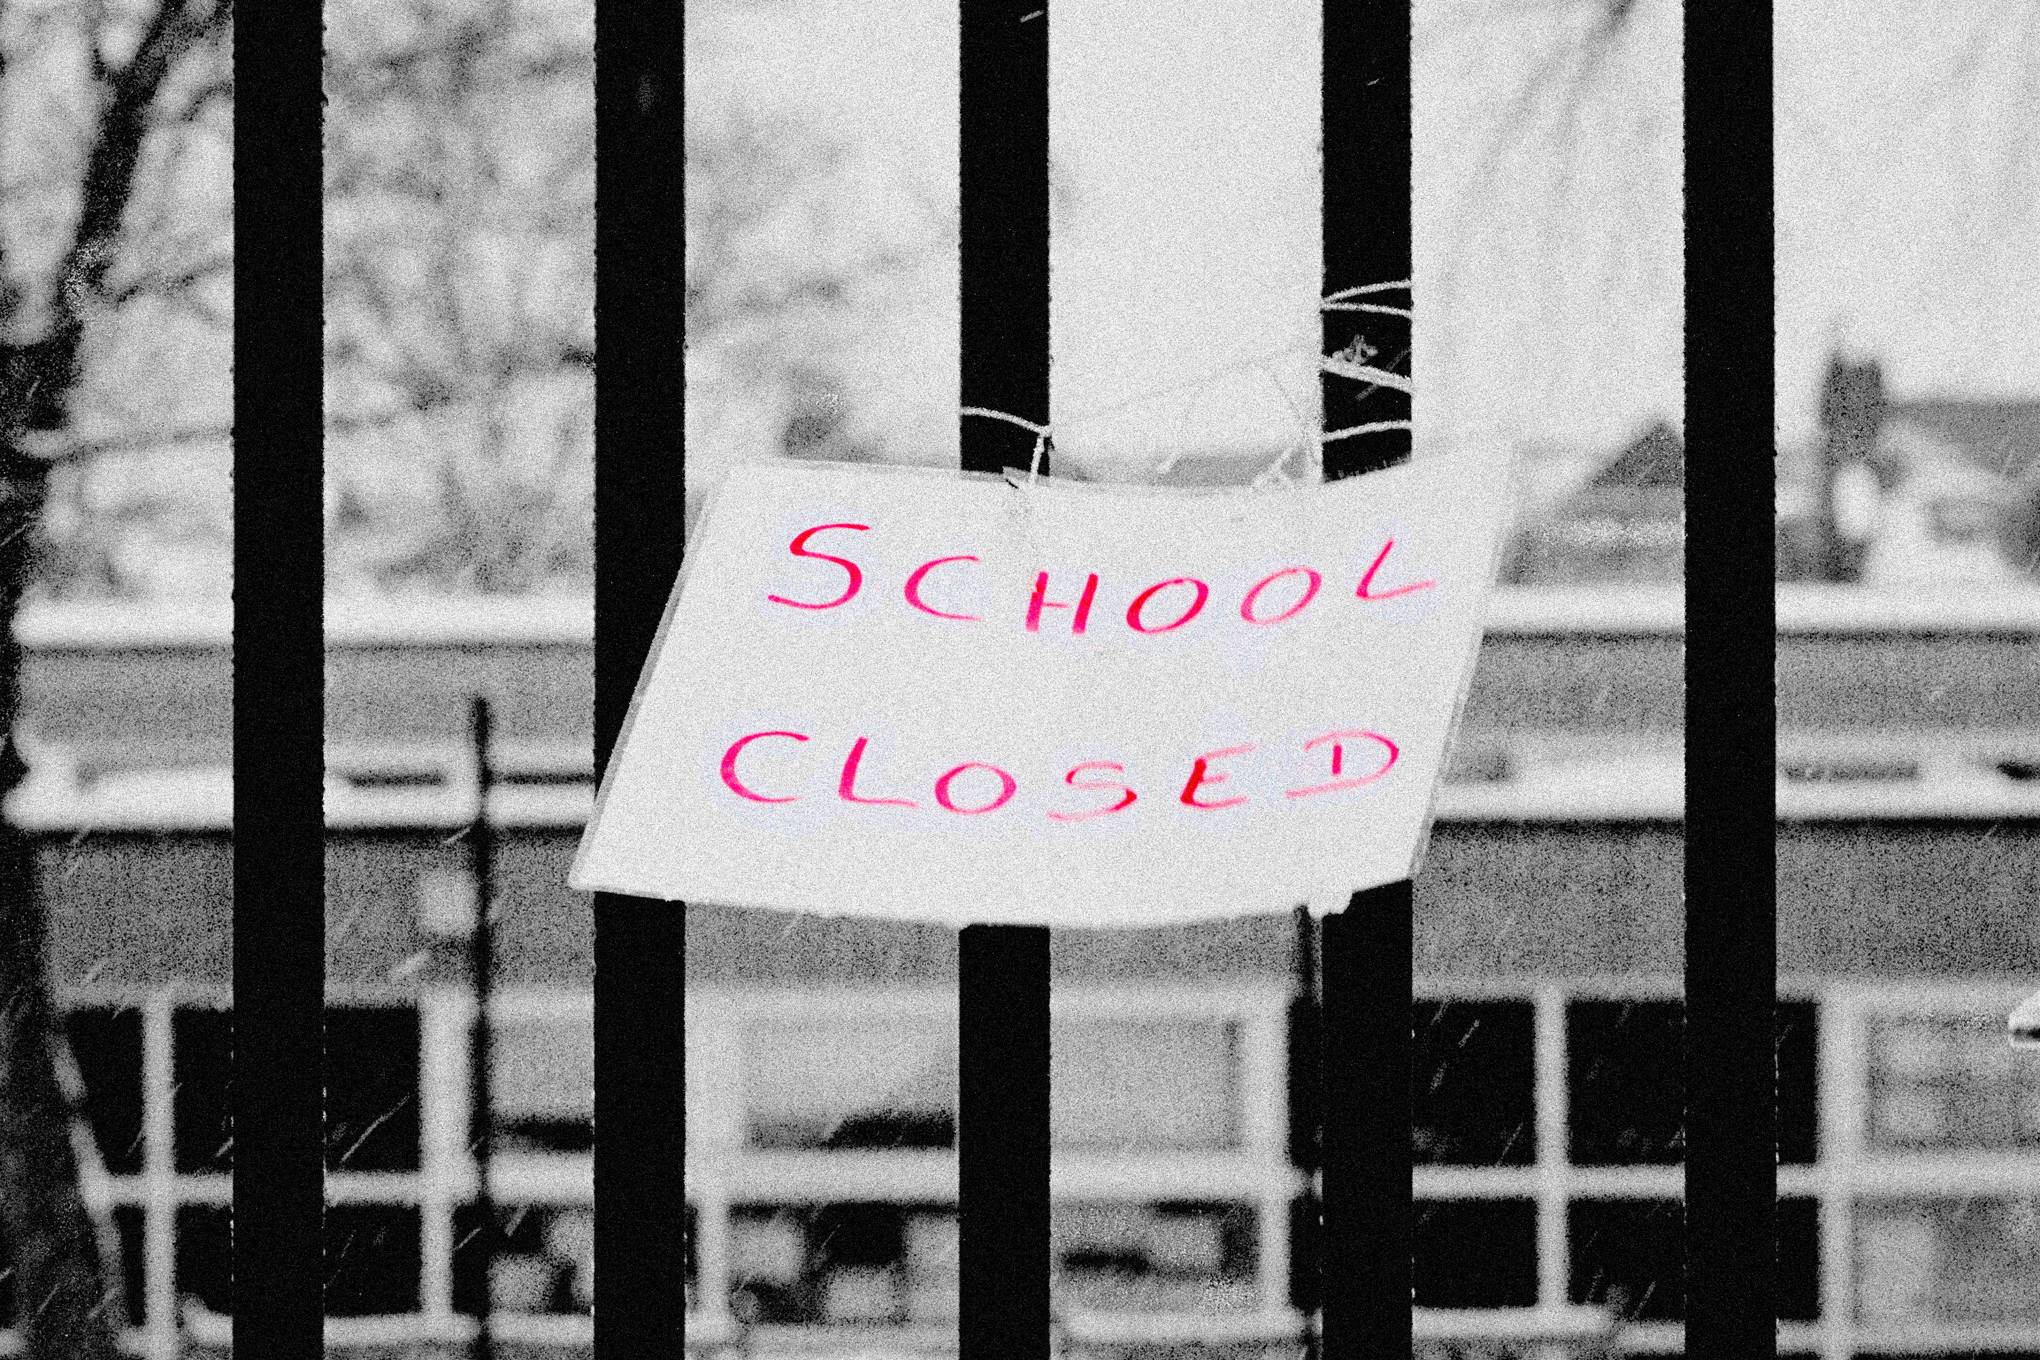 SCHOOL
CLOSED